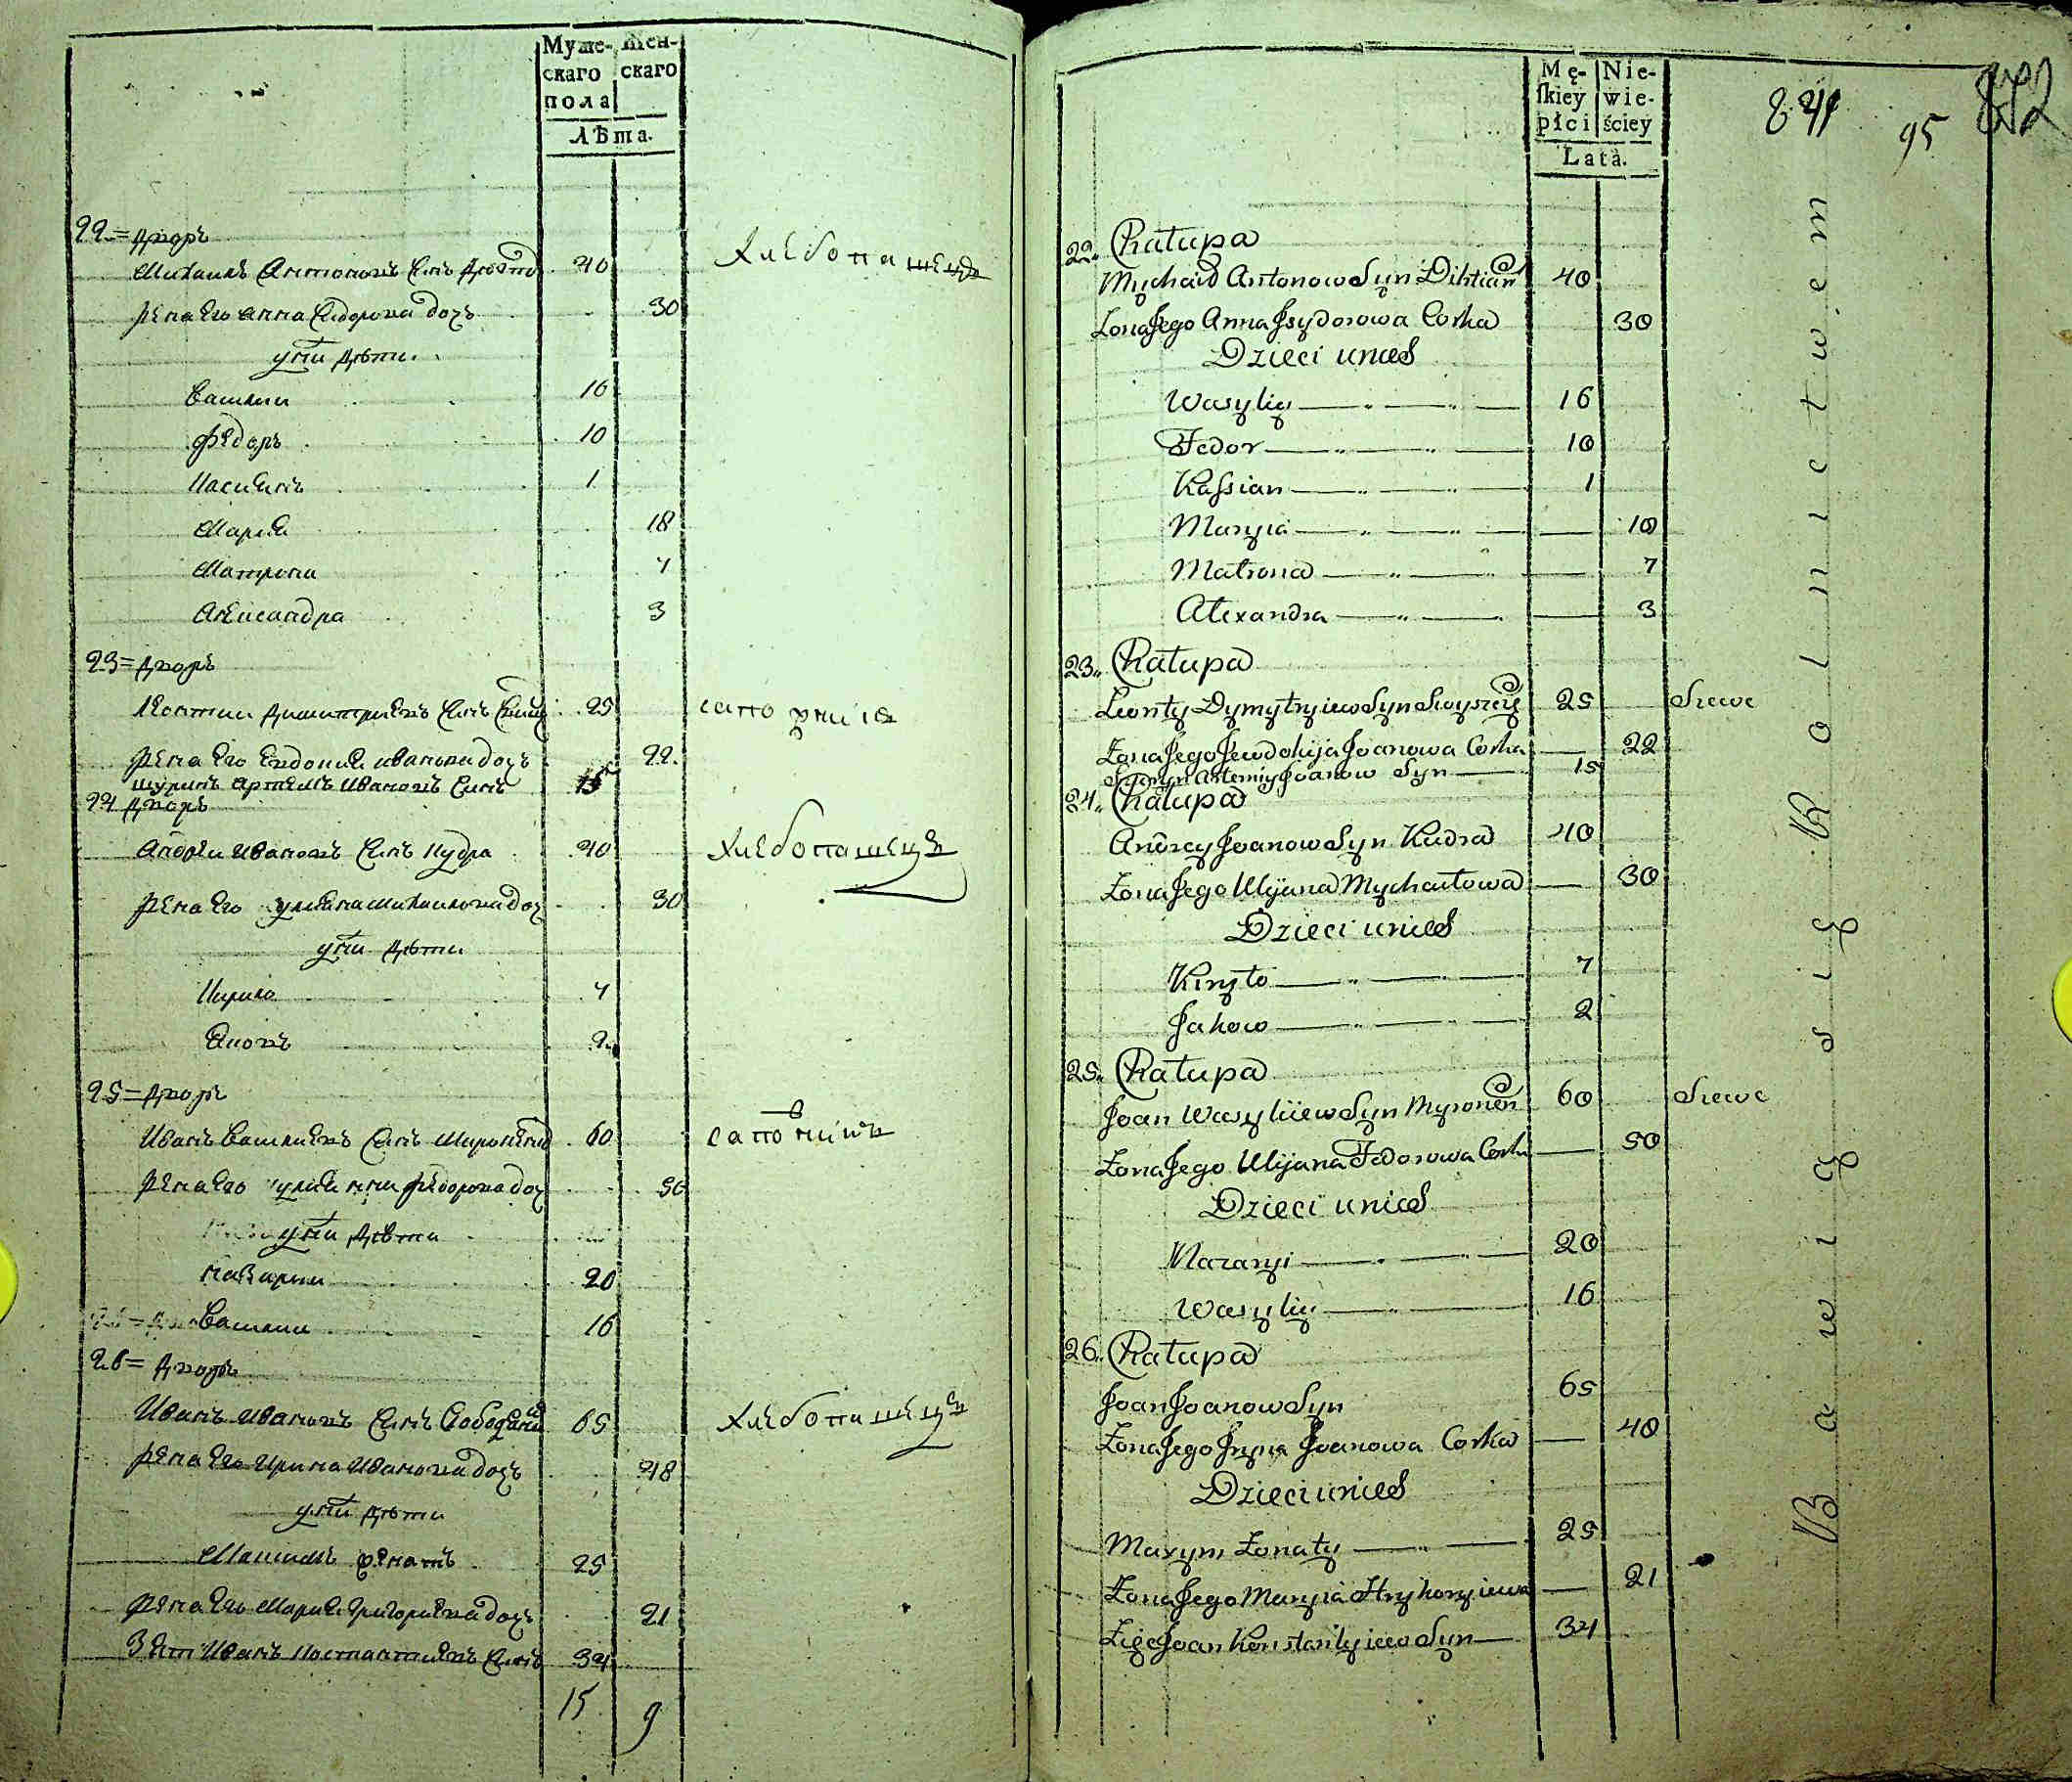 Муже-
скаго
пола
Жен-
скаго
Лѣта.
22= дворъ
Михаилъ Антоновъ Синъ 40
Жена Его Анна Сидорова дочъ 30
у них дѣти
Василии 16
Федоръ 10
Касиянъ 1
Мария 18
Матрона 7
Александра 3
Хлебопашецъ
23= дворъ
Леонтии Димитриевъ Синъ 25
сапожникъ
Жена Его Евдокия иванова дочъ 22
шуринъ Артемъ Ивановъ Синъ 15
24 дворъ
Андреи Ивановъ Синъ Кудра 40
Хлебопашецъ
Жена Его улияна михаилова доч 30
у них дѣти
Кирило 7
Яковъ 2
25= дворъ
Иванъ Василиевъ Синъ Миронен 60
сапожникъ
Жена Его улияна федорова доч 50
у них дѣти
Назарии 20
Василии 16
26= дворъ
Иванъ Ивановъ Синъ 65
Хлебопашецъ
Жена Его Ирина Иванова дочъ 48
у них дѣти
Максимъ женатъ 25
Жена Его Мария Григориева дочъ 21
Зят Иванъ Костантиевъ Синъ 34
15 9
Mę-
ſkiey
płci
Nie-
wie-
ściey
Lata.
841 95 872
22. Chałupa
Mychaił Antonow Syn Dihtiar 40
Żona Jego Anna Jsydorowa Corka 30
Dzieci unich
Wasyliy 16
Fedor 10
Kaſsian 1
Maryia 18
Matrona 7
Alexandra 3
23. Chałupa
Leonty Dymytryiew Syn 25 Szewc
Żona Jego Jewdokija Joanowa Corka 22
Szuryn Artemiy Joanow Syn 15
24. Chałupa
Andrey Joanow Syn Kudra 40
Żona Jego Ulijana Mychaiłowa 30
Dzieci unich
Kiryło 7
Jakow 2
25. Chałupa
Joan Wasylijew Syn Myronen 60 Szewc
Żona Jego Ulijana Fedorowa Corka 50
Dzieci unich
Nazaryi 20
Wasyliy 16
26. Chałupa
Joan Joanow Syn 65
Żona Jego Jryna Joanowa Corka 48
Dzieci unich
Maxym Żonaty 25
Żona Jego Maryia Hryhoryiewa 21
Zięć Joan Konstantyiew Syn 34
Bawią się Rolnictwem